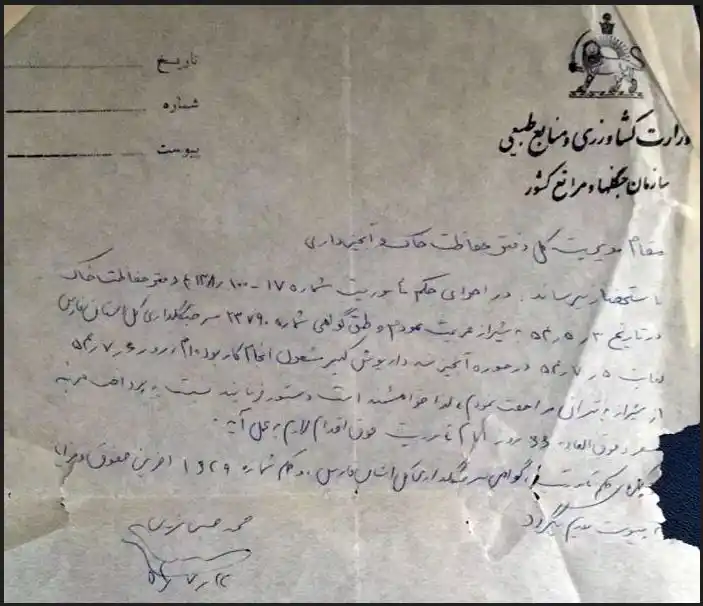 تاریخ
شماره
پیوست
وزارت کشاورزی و منابع طبیعی
سازمان جنگلها و مراتع کشور
مقام مدیریت کل دفتر حفاظت خاک و آبخیزداری
باستحضار میرساند. در اجرای حکم مأموریت شماره ۱۷-۱۰۰ دفتر حفاظت خاک
در تاریخ ۳ر۵ر۵۴ به شیراز عزیمت نمودم و طبق گواهی شماره ۲۳۷۹۰ سرجنگلداری کل استان فارس
لغایت ۵ر۷ر۵۴ در حوزه آبخیز سد داریوش کبیر مشغول انجام کار بوده‌ام و در روز ۶ر۷ر۵۴
از شیراز به تهران مراجعت نمودم، لذا خواهشمند است دستور فرمایند نسبت به پرداخت هزینه
سفر و فوق العاده روز ایام مأموریت فوق اقدام لازم بعمل آید.
حکم مأموریت گواهی سرجنگلداری کل استان فارس، و حکم شماره ۱۶۲۹ آخرین حقوق و مزایا
پیوست تقدیم میگردد
محمد حسن